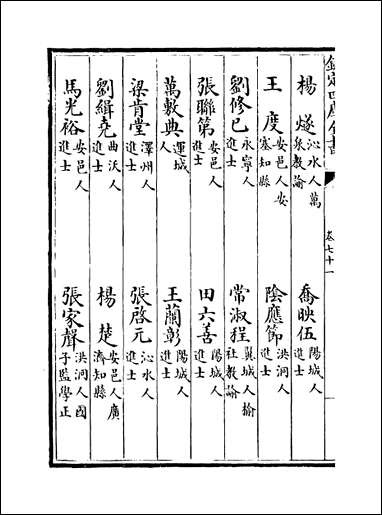 欽定四庫全書
卷七十一
楊燧 沁水人萬泉教諭
喬映伍 陽城人進士
王度 安邑人安塞知縣
陰應節 洪洞人進士
劉修己 永寧人進士
常淑程 翼城人榆社教諭
張聯第 安邑人進士
田六善 陽城人進士
萬敷典 運城人
王蘭彰 陽城人進士
梁肯堂 澤州人進士
張啓元 沁水人進士
劉緝堯 曲沃人進士
楊楚 安邑人廣濟知縣
馬光裕 安邑人進士
張家聲 洪洞人國子監學正